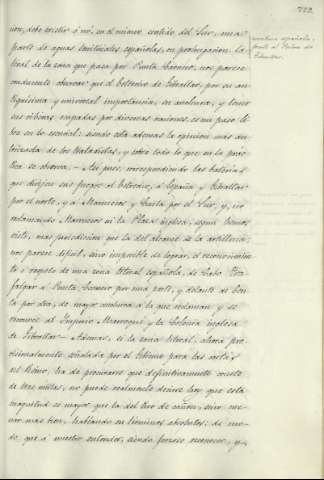 722.
marítima española,
frente al Peñon de
Gibraltar.
ion, debe existir ó nó, en el mismo centro del Sur, una
parte de aguas territoriales españolas, en prolongacion la-
teral de la zona que pasa por Punta Carnero, nos parece
conducente observar que el Estrecho de Gibraltar, por su an-
tiquísima y universal importancia, su anchura, y tener
sus riberas ocupadas por diversas naciones, es un paso li-
bre en lo esencial: siendo esta ademas la opinion mas au-
torizada de los tratadistas, y sobre todo lo que en la prác-
tica se observa. — Así pues, correspondiendo las baterías
que dirijen sus fuegos al Estrecho, á España y Gibraltar
por el norte, y á Marruecos y Ceuta por el Sur, y, no
reclamando Marruecos ni la Plaza inglesa, segun hemos
visto, mas jurisdiccion que la del alcance de la artillería;
nos parece difícil, sino imposible de lograr, el reconocimien-
to ó respeto de una zona litoral española, de Cabo Tra-
falgar á Punta Carnero por una parte, y delante de Ceu-
ta por otra, de mayor anchura á la que reclaman, y se
reconoce al Imperio Marroquí y la Colonia inglesa
de Gibraltar — Ademas, si la zona litoral, ahora pro-
visionalmente señalada por el Gobierno para las costas
del Reino, ha de procurarse que definitivamente conste
de tres millas, no puede realmente decirse hoy que esta
magnitud es mayor que la del tiro de cañon, sino me-
nor mas bien, hablando en términos absolutos: de mo-
do que á nuestro entender, siendo forzoso reconocer, y,